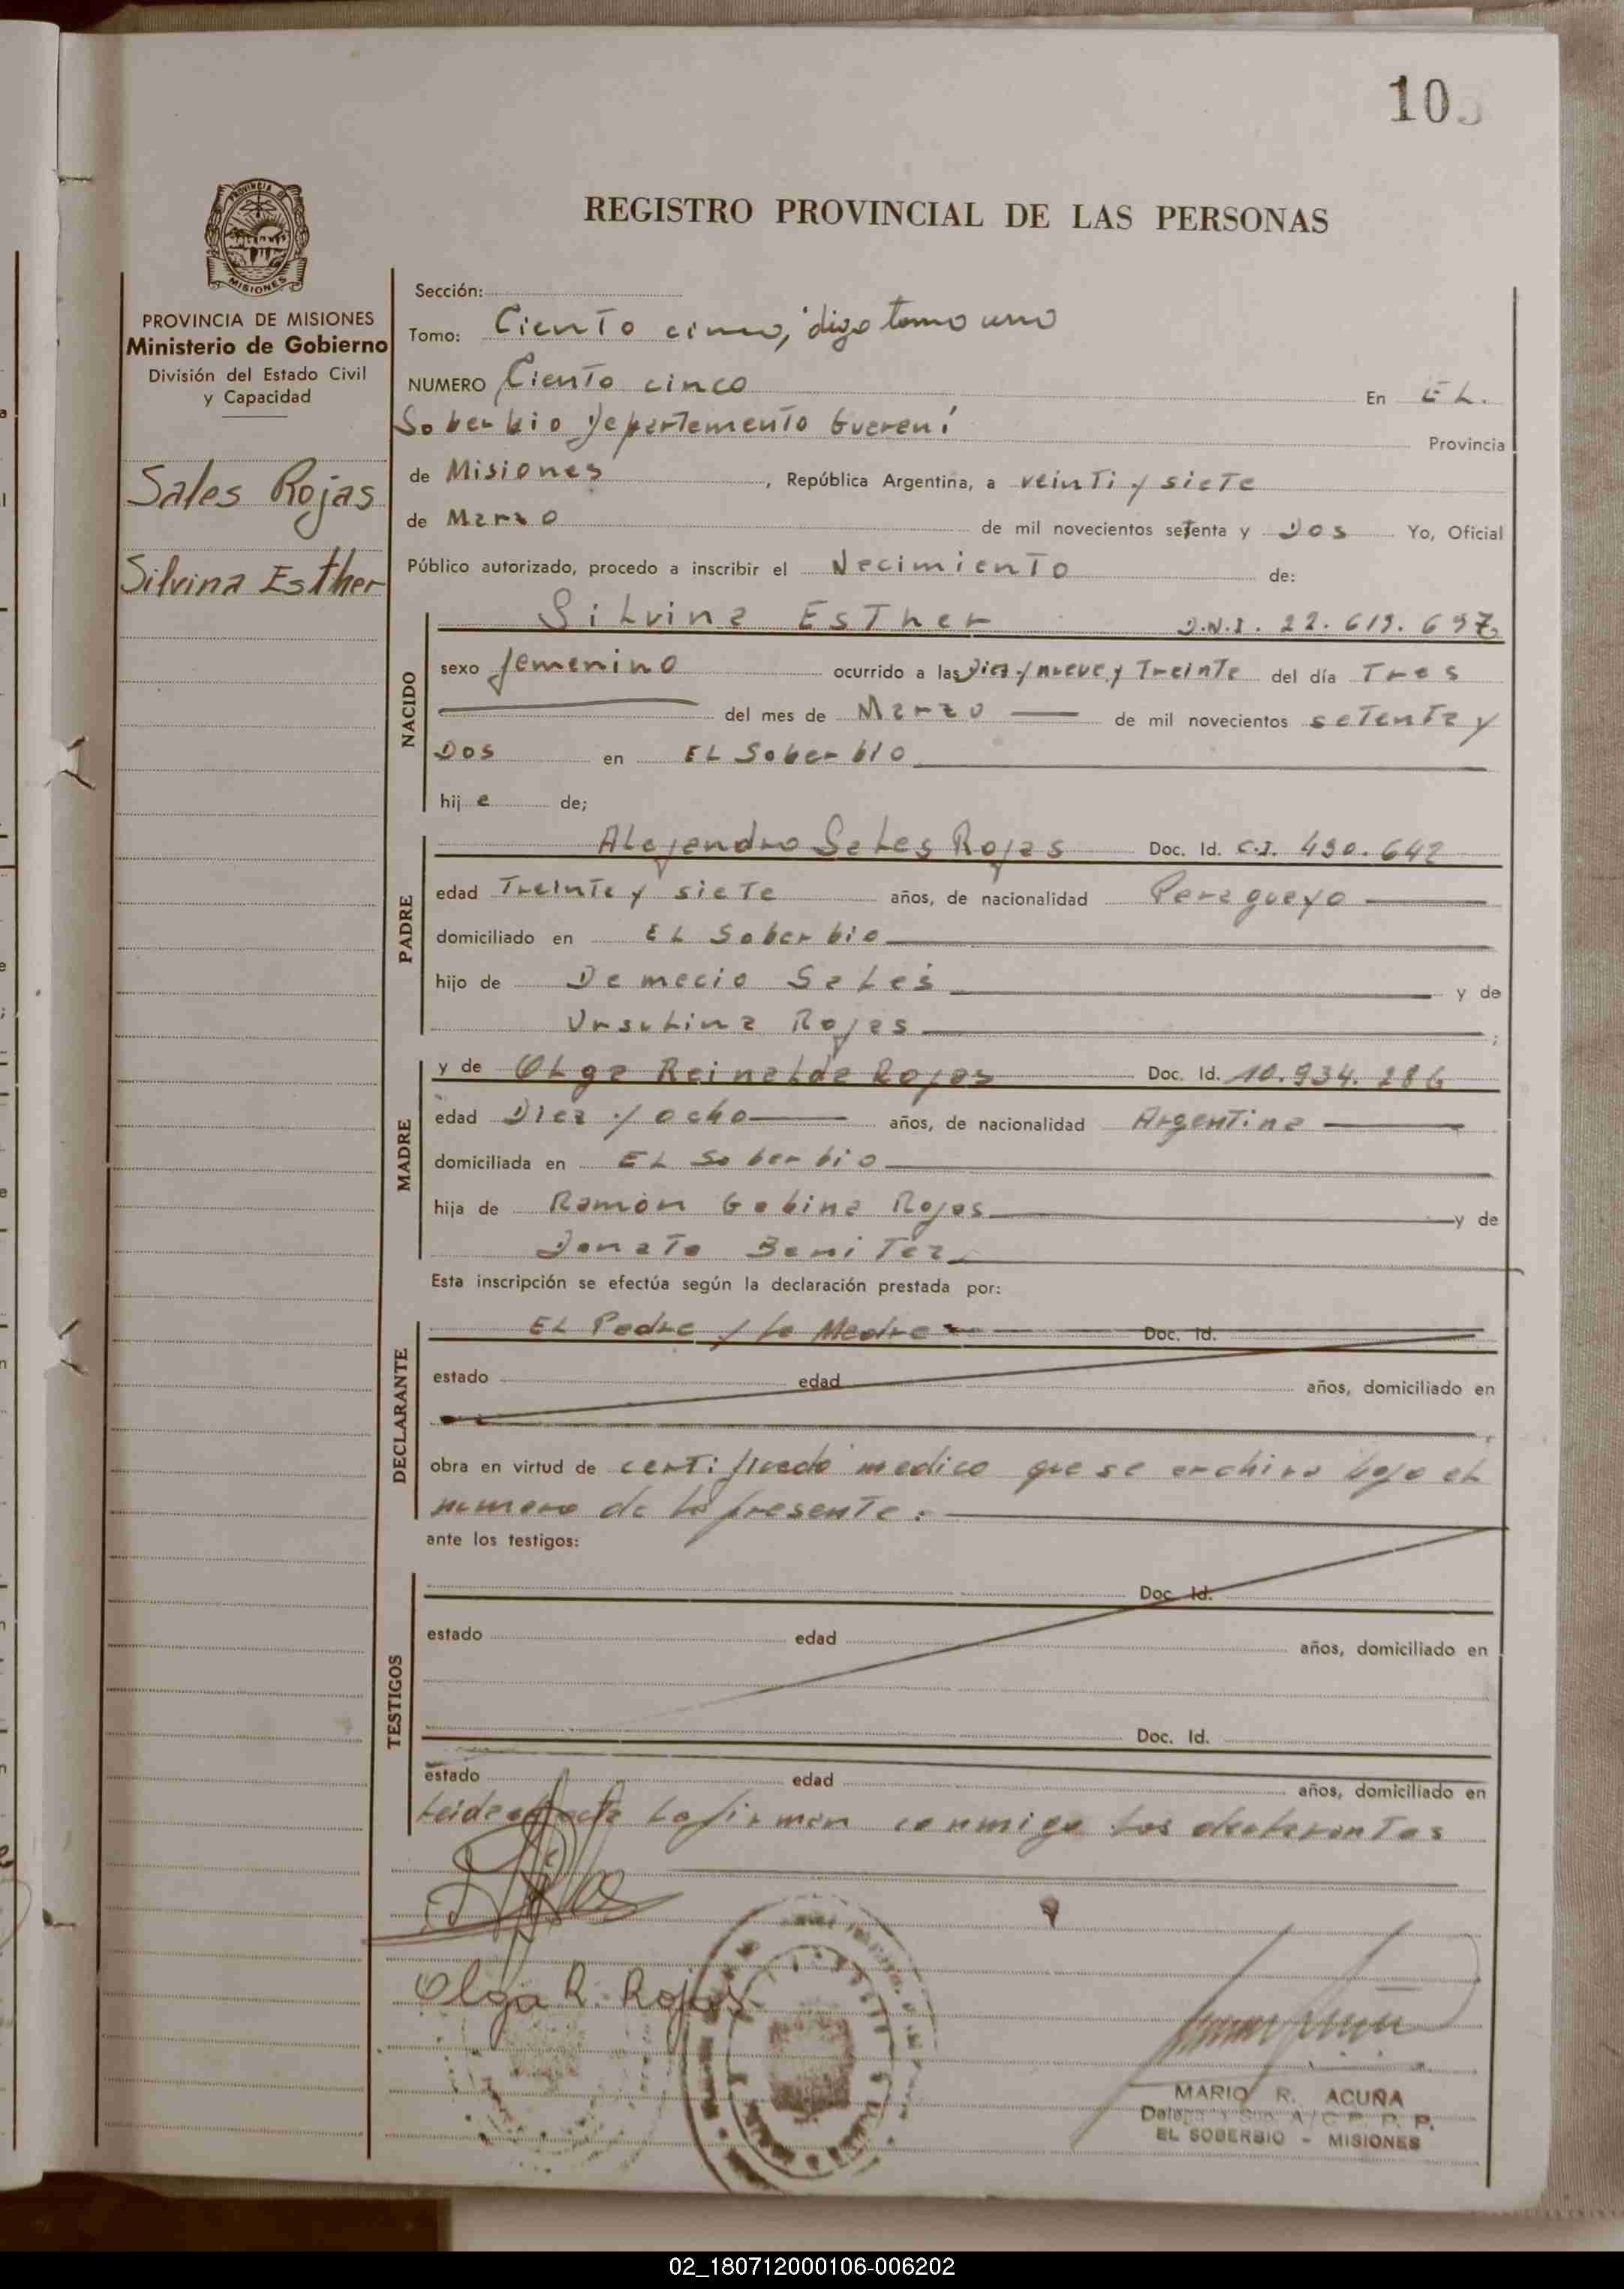 105
REGISTRO PROVINCIAL DE LAS PERSONAS
MISIONES
PROVINCIA DE MISIONES
Ministerio de Gobierno
División del Estado Civil
y Capacidad
Sales Rojas
Silvina Esther
Sección:
Tomo: Ciento cinco, digo tomo uno
NUMERO Ciento cinco En EL.
Soberbio Departamento Guarani Provincia
de Misiones, República Argentina, a veinti y siete
de Marzo de mil novecientos setenta y Dos Yo, Oficial
Público autorizado, procedo a inscribir el Nacimiento de:
NACIDO
Silvina Esther D.N.I. 22.619.697
sexo femenino ocurrido a las Diez y nueve y Treinta del día Tres
del mes de Marzo de mil novecientos setenta y
Dos en EL Soberbio
hija de;
PADRE
Alejandro Sales Rojas Doc. Id. C.I. 490.642
edad Treinta y siete años, de nacionalidad Paraguayo
domiciliado en EL Soberbio
hijo de Demecio Sales y de
Ursulina Rojas;
MADRE
y de Olga Reinalda Rojas Doc. Id. 10.934.286
edad Diez y ocho años, de nacionalidad Argentina
domiciliada en EL Soberbio
hija de Ramón Gabina Rojas y de
Donato Benitez
Esta inscripción se efectúa según la declaración prestada por:
DECLARANTE
EL Padre y la Madre Doc. Id.
estado edad años, domiciliado en
obra en virtud de certificado medico que se archiva bajo el
numero de la presente.
ante los testigos:
TESTIGOS
Doc. Id.
estado edad años, domiciliado en
Doc. Id.
estado edad años, domiciliado en
Leida el acta la firman conmigo los declarantes
Olga R. Rojas
MARIO R. ACUÑA
A/C P. P. P.
EL SOBERBIO - MISIONES
02_180712000106-006202